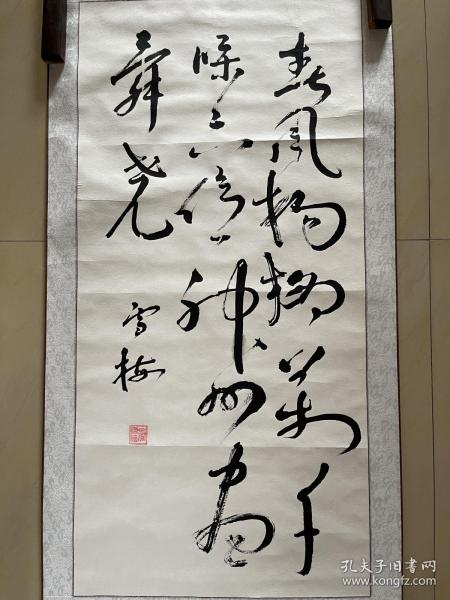 春风杨柳万千
条六亿神州尽
舜尧
雪梅
孔夫子旧书网
www.kongfz.com